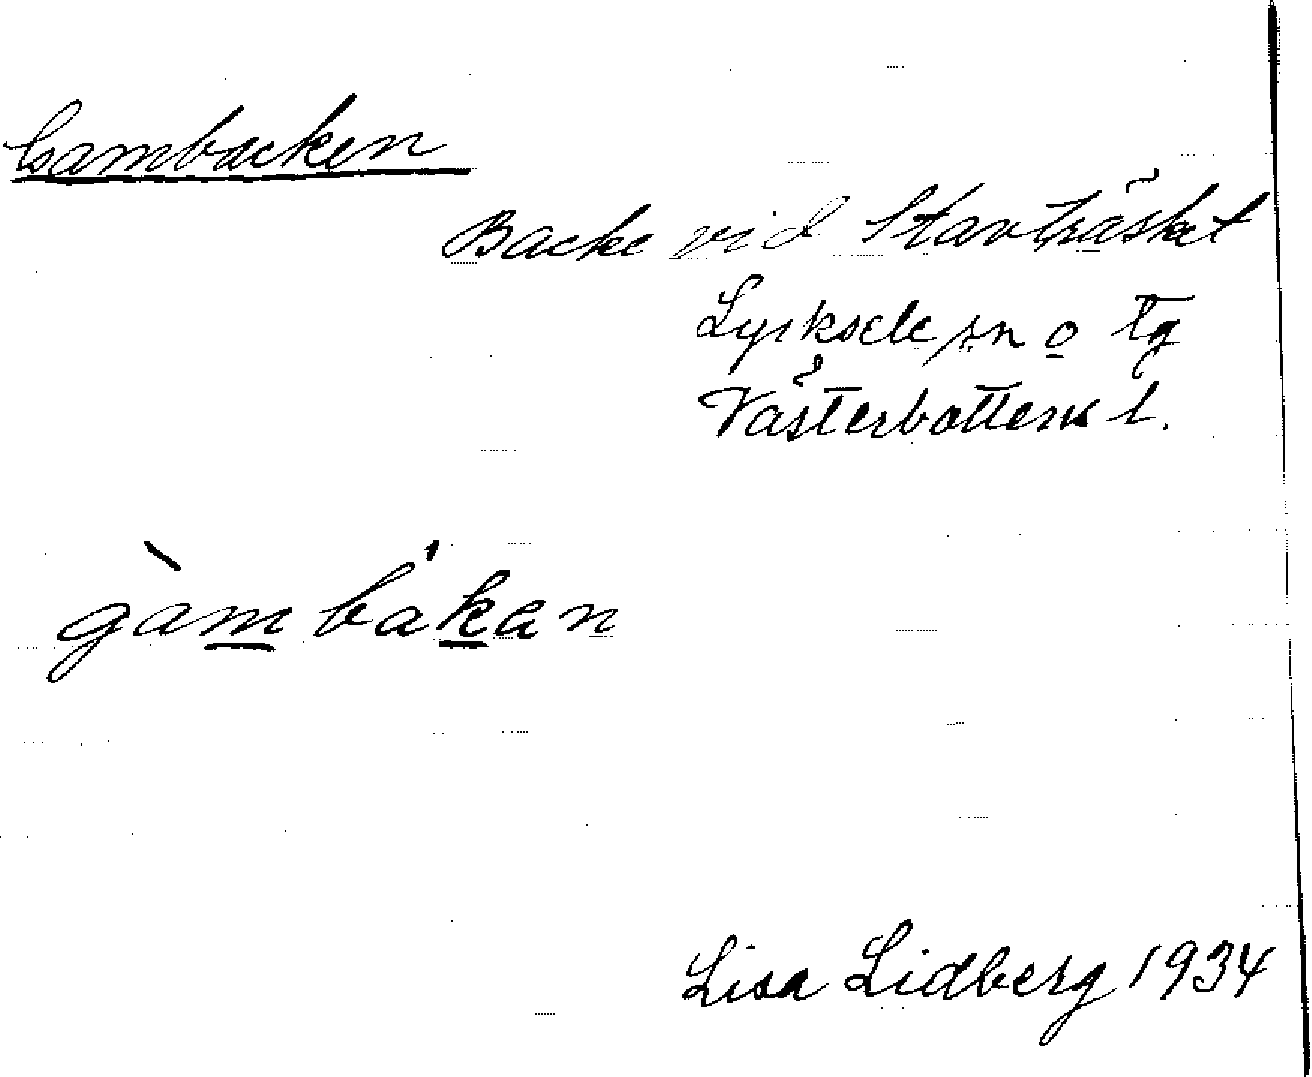 Gambacken
Backe vid Stavträsket
Lycksele sn o tg
Västerbottens l.
gàm bákan
Lisa Lidberg 1934